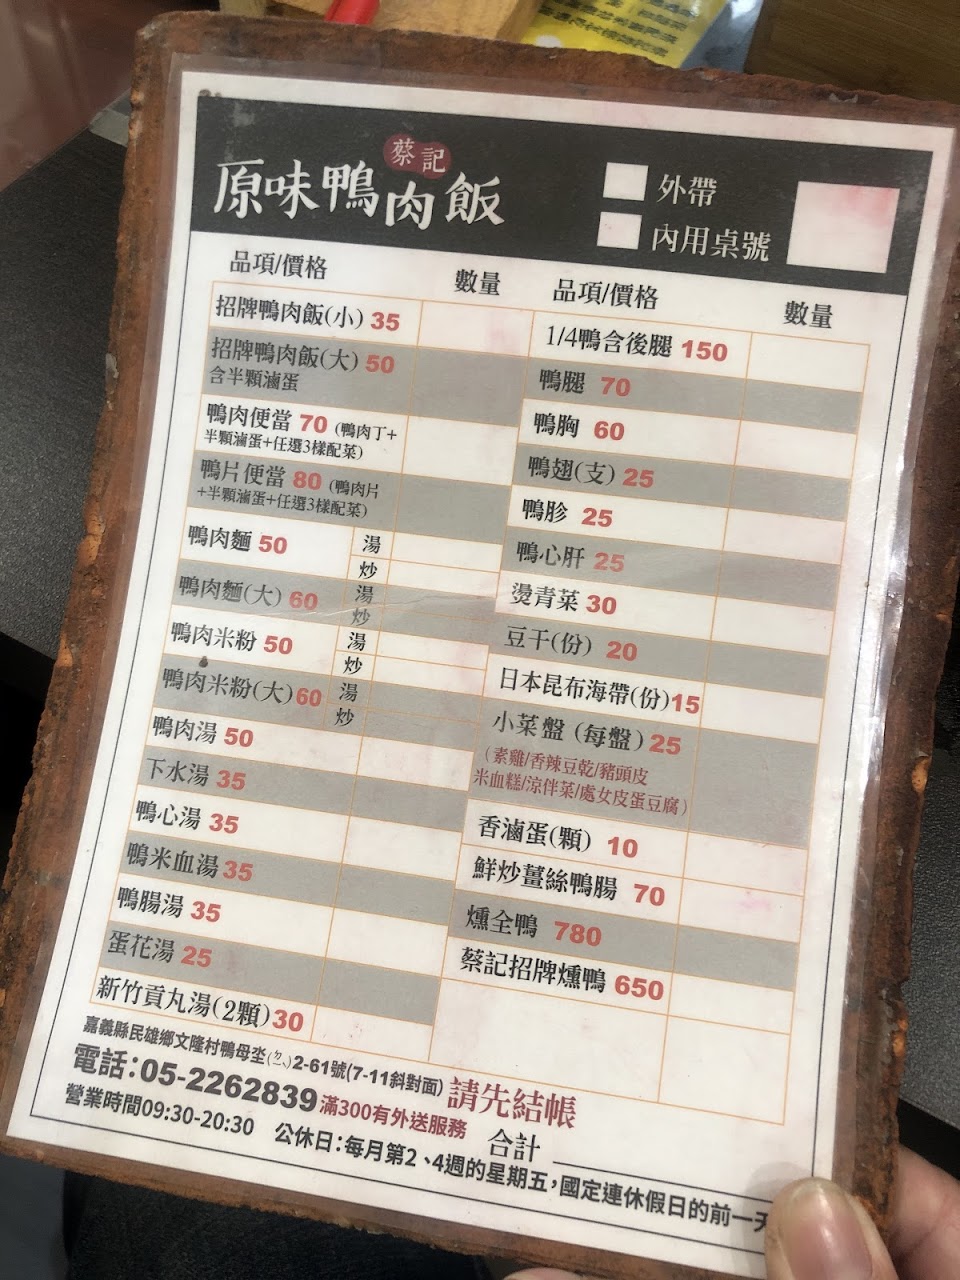 蔡記
原味鴨肉飯
外帶
內用桌號
品項/價格 數量
招牌鴨肉飯(小) 35
招牌鴨肉飯(大) 50
含半顆滷蛋
鴨肉便當 70 (鴨肉丁+
半顆滷蛋+任選3樣配菜)
鴨片便當 80 (鴨肉片
+半顆滷蛋+任選3樣配菜)
鴨肉麵 50 湯
炒
鴨肉麵(大) 60 湯
炒
鴨肉米粉 50 湯
炒
鴨肉米粉(大) 60 湯
炒
鴨肉湯 50
下水湯 35
鴨心湯 35
鴨米血湯 35
鴨腸湯 35
蛋花湯 25
新竹貢丸湯(2顆) 30
品項/價格 數量
1/4鴨含後腿 150
鴨腿 70
鴨胸 60
鴨翅(支) 25
鴨胗 25
鴨心肝 25
燙青菜 30
豆干(份) 20
日本昆布海帶(份) 15
小菜盤 (每盤) 25
(素雞/香辣豆乾/豬頭皮
米血糕/涼伴菜/處女皮蛋豆腐)
香滷蛋(顆) 10
鮮炒薑絲鴨腸 70
燻全鴨 780
蔡記招牌燻鴨 650
嘉義縣民雄鄉文隆村鴨母坔(ㄉㄧㄢˋ)2-61號(7-11斜對面)
電話:05-2262839 滿300有外送服務
請先結帳
合計
營業時間09:30-20:30 公休日:每月第2、4週的星期五,國定連休假日的前一天